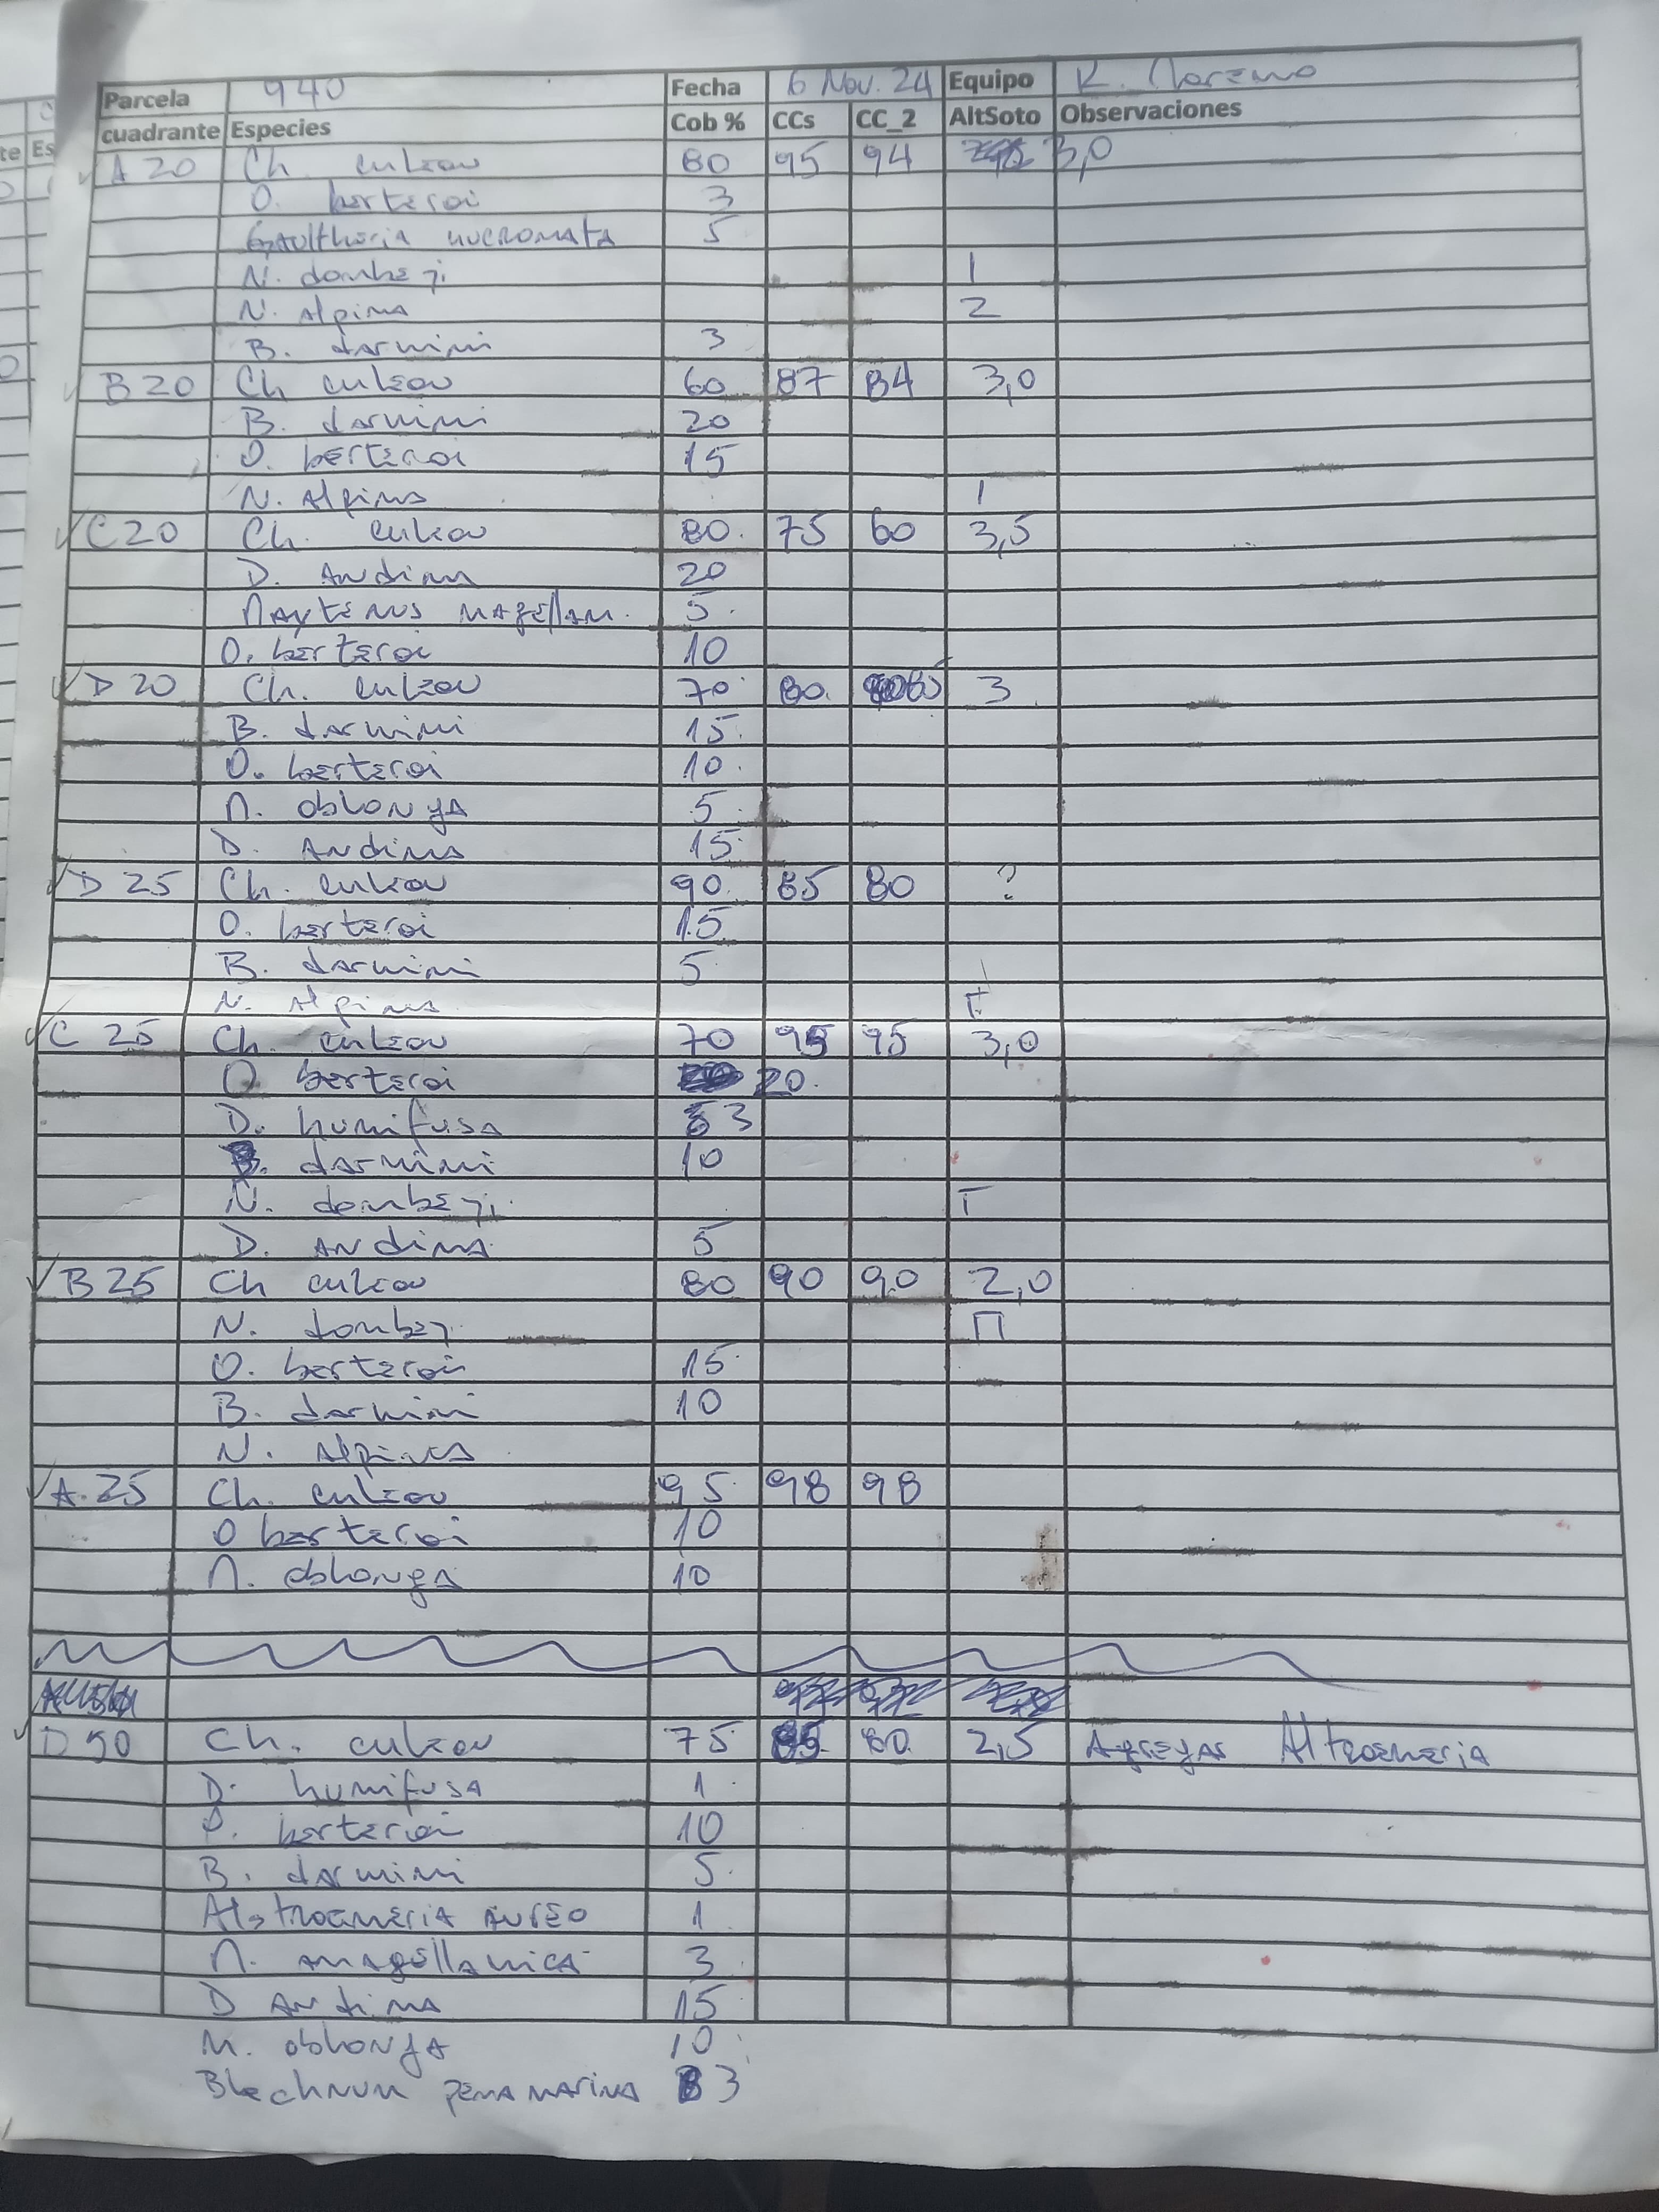 Parcela 940 Fecha 6 Nov. 24 Equipo R. Moreno
cuadrante Especies Cob % CCs CC_2 AltSoto Observaciones
A 20 Ch. culeou 80 95 94 3,0
O. berteroi 3
Gaultheria mucronata 5
N. dombeyi 1
N. Alpina 2
B. darwinii 3
B 20 Ch culeou 60 87 84 3,0
B. darwinii 20
O. berteroi 15
N. Alpina 1
C 20 Ch. culeou 80 75 60 3,5
D. Andina 20
Maytenus magellan. 5
O. berteroi 10
D 20 Ch. culeou 70 80 3
B. darwinii 15
O. berteroi 10
M. oblonga 5
D. Andina 15
D 25 Ch. culeou 90 85 80 ?
O. berteroi 15
B. darwinii 5
N. Alpina
C 25 Ch. culeou 70 95 95 3,0
O berteroi 20
D. humifusa 3
B. darwinii 10
N. dombeyi
D. Andina 5
B 25 Ch culeou 80 90 90 2,0
N. dombeyi
O. berteroi 15
B. darwinii 10
N. Alpina
A. 25 Ch. culeou 95 98 98
O berteroi 10
M. oblonga 10
D 50 Ch. culeou 75 85 80 2,5 Agregar Altroemeria
D. humifusa 1
O. berteroi 10
B. darwinii 5
Alstroemeria aureo 1
M. magellanica 3
D Andina 15
M. oblonga 10
Blechnum penamarina 3